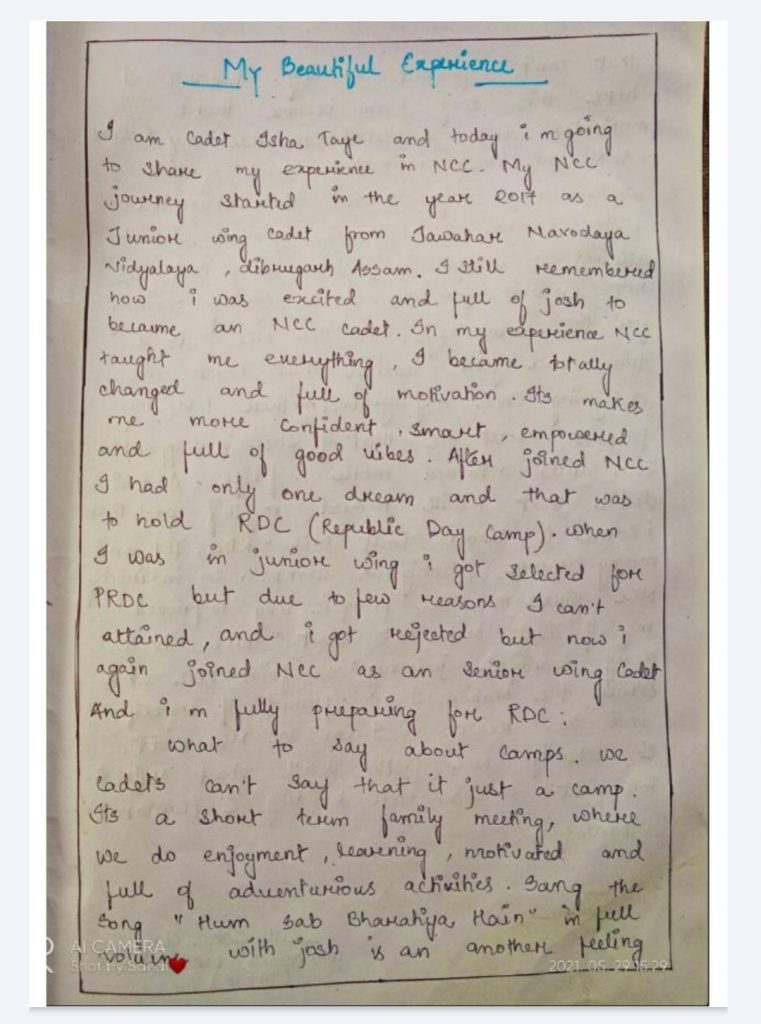 My Beautiful Experience
I am cadet Isha Taye and today i m going
to share my experience in NCC. My NCC
journey started in the year 2017 as a
Junior wing cadet from Jawahar Navodaya
Vidyalaya , dibrugarh Assam. I still remembered
how i was excited and full of josh to
became an NCC cadet. In my experience NCC
taught me everything , I became totally
changed and full of motivation . Its makes
me more confident , smart , empowered
and full of good vibes . After joined NCC
I had only one dream and that was
to hold RDC (Republic Day Camp). when
I was in junior wing i got selected for
PRDC but due to few reasons I can't
attained , and i got rejected but now i
again joined NCC as an senior wing Cadet
And i m fully preparing for RDC :
what to say about camps . we
cadets can't say that it just a camp.
Its a short term family meeting, where
we do enjoyment , learning , motivated and
full of adventurious activities . Sang the
song "Hum Sab Bharatiya Hain" in full
volume with josh is an another feeling
AI CAMERA
Shot by Sandi
2021.05.29 15:29